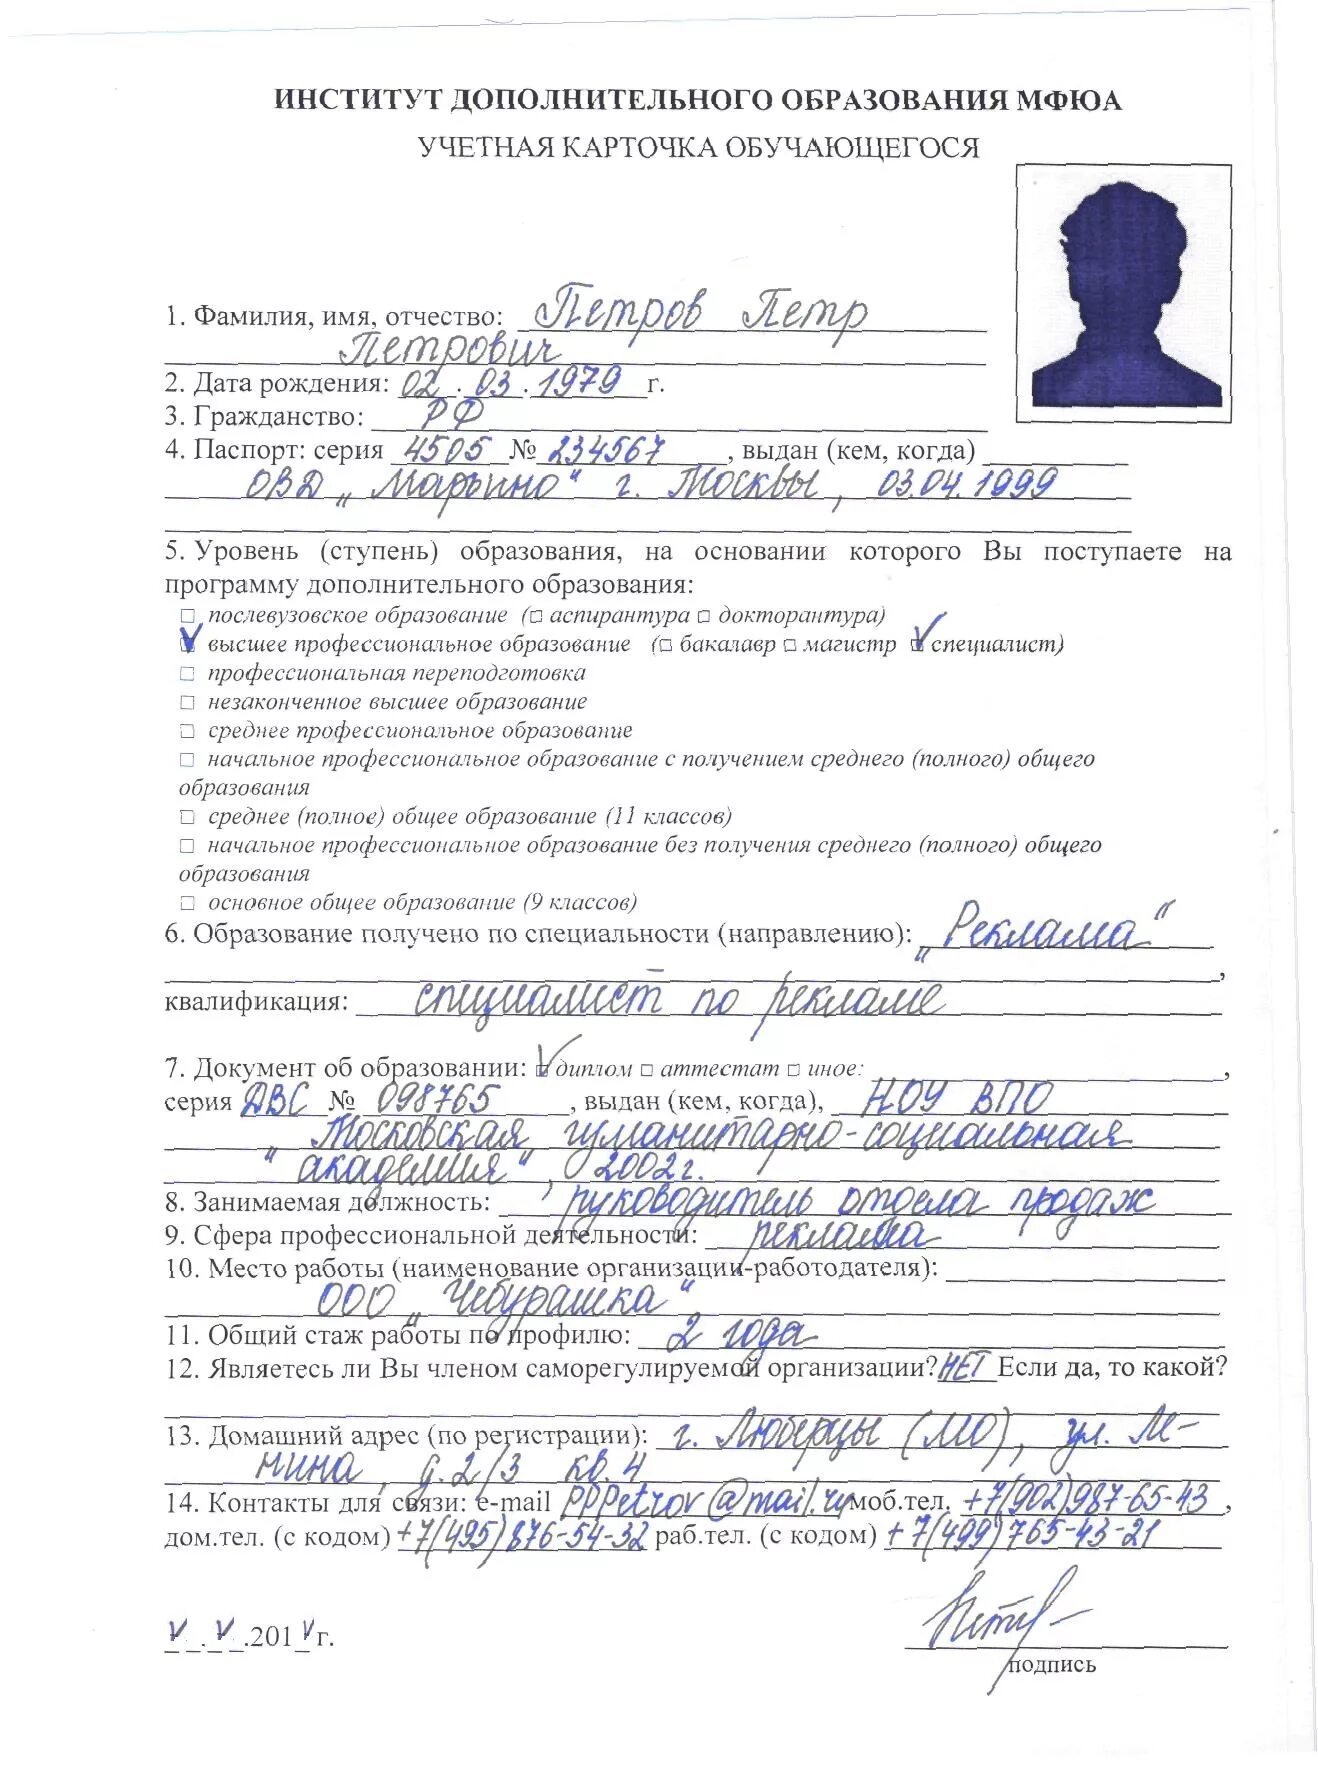 ИНСТИТУТ ДОПОЛНИТЕЛЬНОГО ОБРАЗОВАНИЯ МФЮА
УЧЕТНАЯ КАРТОЧКА ОБУЧАЮЩЕГОСЯ
1. Фамилия, имя, отчество: Петров Петр
Петрович
2. Дата рождения: 02.03.1979 г.
3. Гражданство: РФ
4. Паспорт: серия 4505 № 234567, выдан (кем, когда)
ОВД „Марьино“ г. Москвы, 03.04.1999
5. Уровень (ступень) образования, на основании которого Вы поступаете на
программу дополнительного образования:
□ послевузовское образование (□ аспирантура □ докторантура)
☑ высшее профессиональное образование (□ бакалавр □ магистр ☑ специалист)
□ профессиональная переподготовка
□ незаконченное высшее образование
□ среднее профессиональное образование
□ начальное профессиональное образование с получением среднего (полного) общего
образования
□ среднее (полное) общее образование (11 классов)
□ начальное профессиональное образование без получения среднего (полного) общего
образования
□ основное общее образование (9 классов)
6. Образование получено по специальности (направлению): „Реклама“
,
квалификация: специалист по рекламе
7. Документ об образовании: ☑ диплом □ аттестат □ иное: ,
серия ДВС № 098765, выдан (кем, когда), НОУ ВПО
„Московская гуманитарно-социальная
академия“, 2002 г.
8. Занимаемая должность: руководитель отдела продаж
9. Сфера профессиональной деятельности: реклама
10. Место работы (наименование организации-работодателя):
ООО „Чебурашка“
11. Общий стаж работы по профилю: 2 года
12. Являетесь ли Вы членом саморегулируемой организации? НЕТ Если да, то какой?
13. Домашний адрес (по регистрации): г. Люберцы (МО), ул. Ми-
нина, д. 2/3 кв. 4
14. Контакты для связи: e-mail PPPetrov@mail.ru моб.тел. +7(902)987-65-43,
дом.тел. (с кодом) +7(495)876-54-32 раб.тел. (с кодом) +7(499)765-43-21
V . V .201V г.
подпись